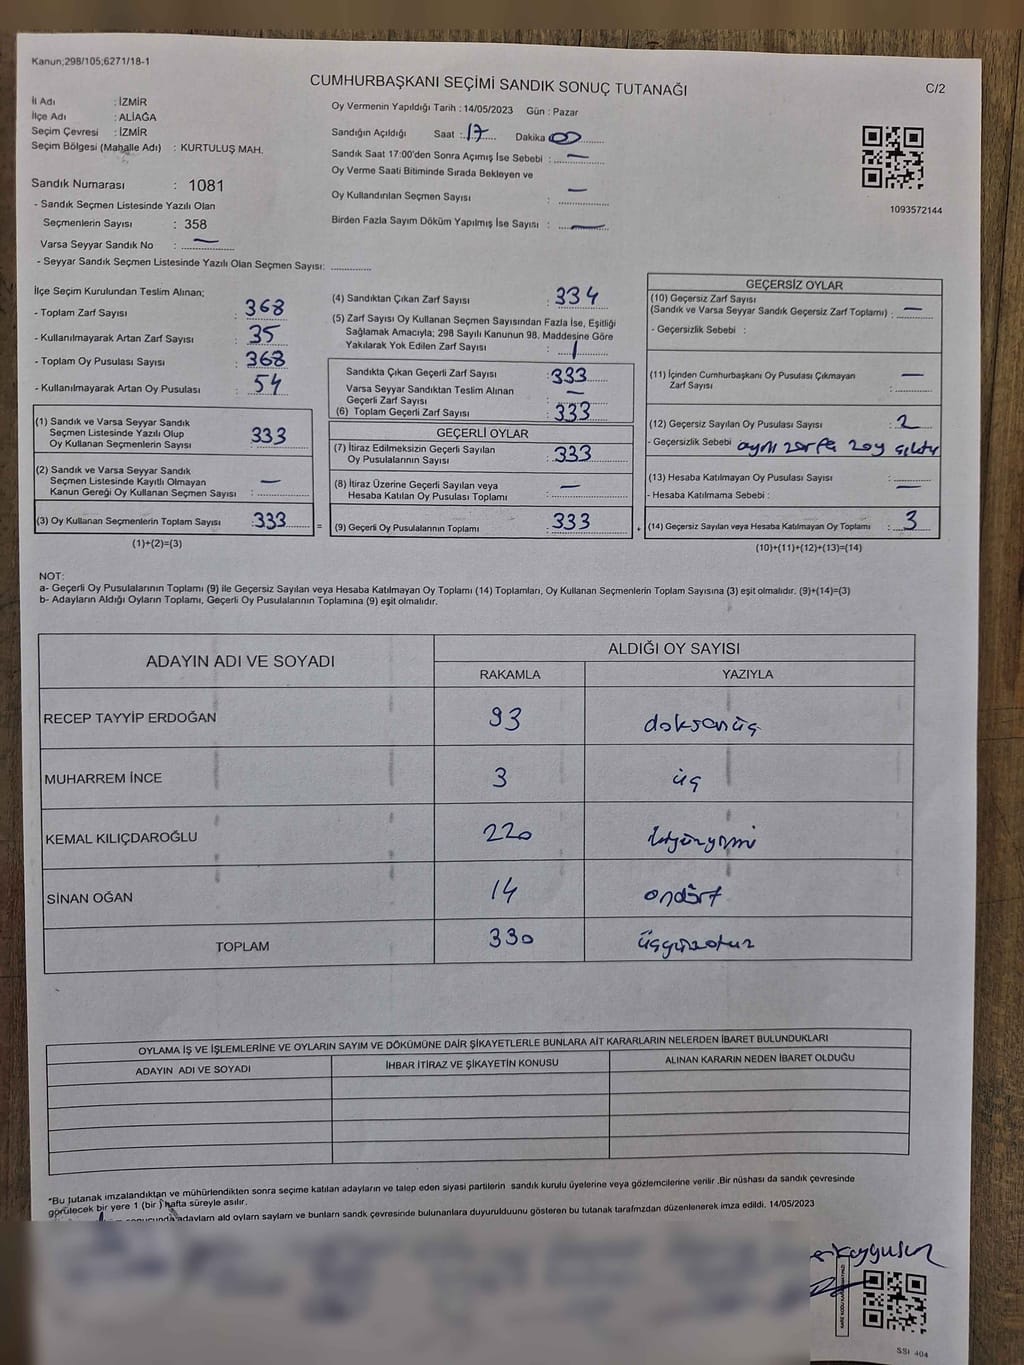 Kanun;298/105;6271/18-1
CUMHURBAŞKANI SEÇİMİ SANDIK SONUÇ TUTANAĞI
C/2
İl Adı : İZMİR
İlçe Adı : ALİAĞA
Seçim Çevresi : İZMİR
Seçim Bölgesi (Mahalle Adı) : KURTULUŞ MAH.
Sandık Numarası : 1081
- Sandık Seçmen Listesinde Yazılı Olan
Seçmenlerin Sayısı : 358
Varsa Seyyar Sandık No : —
- Seyyar Sandık Seçmen Listesinde Yazılı Olan Seçmen Sayısı: ............
Oy Vermenin Yapıldığı Tarih : 14/05/2023 Gün : Pazar
Sandığın Açıldığı Saat : 17 Dakika 00
Sandık Saat 17:00'den Sonra Açımış İse Sebebi : —
Oy Verme Saati Bitiminde Sırada Bekleyen ve
Oy Kullandırılan Seçmen Sayısı : —
Birden Fazla Sayım Döküm Yapılmış İse Sayısı : —
1093572144
İlçe Seçim Kurulundan Teslim Alınan;
- Toplam Zarf Sayısı : 368
- Kullanılmayarak Artan Zarf Sayısı : 35
- Toplam Oy Pusulası Sayısı : 368
- Kullanılmayarak Artan Oy Pusulası : 54
(1) Sandık ve Varsa Seyyar Sandık
Seçmen Listesinde Yazılı Olup
Oy Kullanan Seçmenlerin Sayısı : 333
(2) Sandık ve Varsa Seyyar Sandık
Seçmen Listesinde Kayıtlı Olmayan
Kanun Gereği Oy Kullanan Seçmen Sayısı : —
(3) Oy Kullanan Seçmenlerin Toplam Sayısı : 333 =
(1)+(2)=(3)
(4) Sandıktan Çıkan Zarf Sayısı : 334
(5) Zarf Sayısı Oy Kullanan Seçmen Sayısından Fazla İse, Eşitliği
Sağlamak Amacıyla; 298 Sayılı Kanunun 98. Maddesine Göre
Yakılarak Yok Edilen Zarf Sayısı : 1
Sandıkta Çıkan Geçerli Zarf Sayısı : 333
Varsa Seyyar Sandıktan Teslim Alınan
Geçerli Zarf Sayısı : —
(6) Toplam Geçerli Zarf Sayısı : 333
GEÇERLİ OYLAR
(7) İtiraz Edilmeksizin Geçerli Sayılan
Oy Pusulalarının Sayısı : 333
(8) İtiraz Üzerine Geçerli Sayılan veya
Hesaba Katılan Oy Pusulası Toplamı : —
(9) Geçerli Oy Pusulalarının Toplamı : 333 +
GEÇERSİZ OYLAR
(10) Geçersiz Zarf Sayısı
(Sandık ve Varsa Seyyar Sandık Geçersiz Zarf Toplamı) : —
- Geçersizlik Sebebi :
(11) İçinden Cumhurbaşkanı Oy Pusulası Çıkmayan
Zarf Sayısı : —
(12) Geçersiz Sayılan Oy Pusulası Sayısı : 2
- Geçersizlik Sebebi aynı zarfta 2 oy çıktı
(13) Hesaba Katılmayan Oy Pusulası Sayısı : —
- Hesaba Katılmama Sebebi :
(14) Geçersiz Sayılan veya Hesaba Katılmayan Oy Toplamı : 3
(10)+(11)+(12)+(13)=(14)
NOT:
a- Geçerli Oy Pusulalarının Toplamı (9) ile Geçersiz Sayılan veya Hesaba Katılmayan Oy Toplamı (14) Toplamları, Oy Kullanan Seçmenlerin Toplam Sayısına (3) eşit olmalıdır. (9)+(14)=(3)
b- Adayların Aldığı Oyların Toplamı, Geçerli Oy Pusulalarının Toplamına (9) eşit olmalıdır.
ADAYIN ADI VE SOYADI
ALDIĞI OY SAYISI
RAKAMLA YAZIYLA
RECEP TAYYİP ERDOĞAN 93 doksanüç
MUHARREM İNCE 3 üç
KEMAL KILIÇDAROĞLU 220 ikiyüzyirmi
SİNAN OĞAN 14 ondört
TOPLAM 330 üçyüzotuz
OYLAMA İŞ VE İŞLEMLERİNE VE OYLARIN SAYIM VE DÖKÜMÜNE DAİR ŞİKAYETLERLE BUNLARA AİT KARARLARIN NELERDEN İBARET BULUNDUKLARI
ADAYIN ADI VE SOYADI İHBAR İTİRAZ VE ŞİKAYETİN KONUSU ALINAN KARARIN NEDEN İBARET OLDUĞU
*Bu tutanak imzalandıktan ve mühürlendikten sonra seçime katılan adayların ve talep eden siyasi partilerin sandık kurulu üyelerine veya gözlemcilerine verilir .Bir nüshası da sandık çevresinde
görülecek bir yere 1 (bir ) hafta süreyle asılır.
sonucunda adaylarn ald oylarn saylarn ve bunlarn sandk çevresinde bulunanlara duyurulduunu gösteren bu tutanak tarafmzdan düzenlenerek imza edildi. 14/05/2023
SSI 404